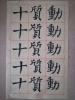 動動動動動
質質質質質
十十十十十